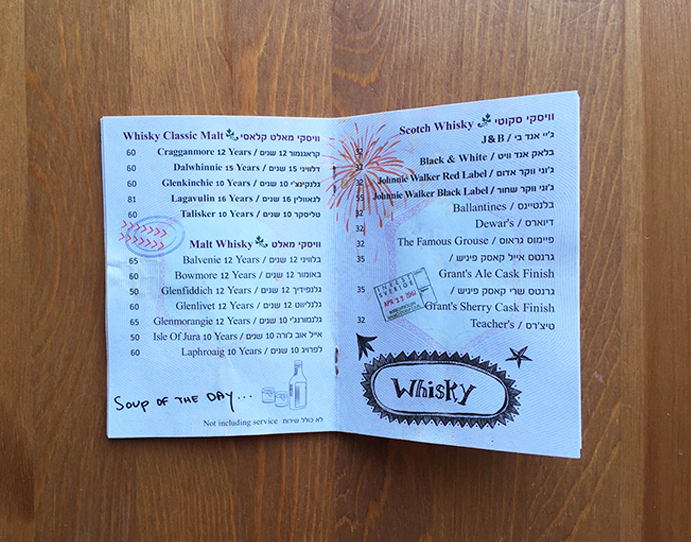 Whisky Classic Malt וויסקי מאלט קלאסי
60 Cragganmore 12 Years / קראגנמור 12 שנים
60 Dalwhinnie 15 Years / דלוויני 15 שנים
60 Glenkinchie 10 Years / גלנקינצ'י 10 שנים
81 Lagavulin 16 Years / לגאוולין 16 שנים
60 Talisker 10 Years / טליסקר 10 שנים
Malt Whisky וויסקי מאלט
65 Balvenie 12 Years / בלוויני 12 שנים
60 Bowmore 12 Years / באומור 12 שנים
50 Glenfiddich 12 Years / גלנפידיך 12 שנים
60 Glenlivet 12 Years / גלנליווט 12 שנים
65 Glenmorangie 12 Years / גלנמורנג'י 10 שנים
50 Isle Of Jura 10 Years / אייל אוב ג'ורה 10 שנים
60 Laphroaig 10 Years / לפרויג 10 שנים
Soup of the day...
Not including service לא כולל שירות
Scotch Whisky וויסקי סקוטי
32 J&B / ג'יי אנד בי
32 Black & White / בלאק אנד וויט
32 Johnnie Walker Red Label / ג'וני ווקר אדום
55 Johnnie Walker Black Label / ג'וני ווקר שחור
32 Ballantines / בלנטיינס
32 Dewar's / דיוארס
32 The Famous Grouse / פיימוס גראוס
35 גרנטס אייל קאסק פיניש /
Grant's Ale Cask Finish
35 גרנטס שרי קאסק פיניש /
Grant's Sherry Cask Finish
32 Teacher's / טיצ'רס
INREST
SVERIGE
APR 27
Whisky